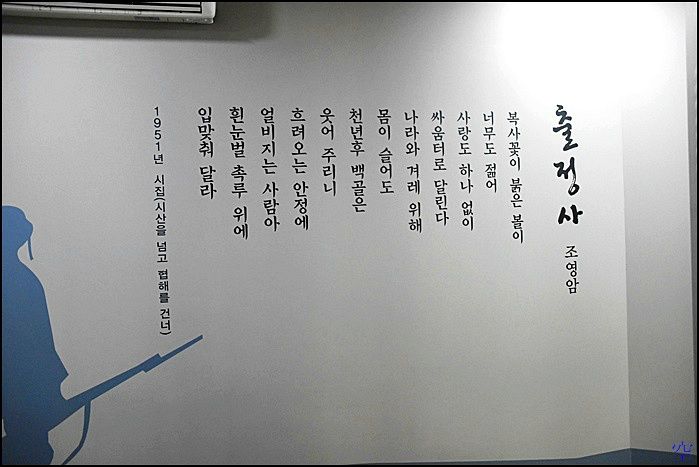 출정사
조영암
복사꽃이 붉은 볼이
너무도 젊어
사랑도 하나 없이
싸움터로 달린다
나라와 겨레 위해
몸이 슬어도
천년후 백골은
웃어 주리니
흐려오는 안정에
얼비지는 사람아
흰눈벌 촉루 위에
입맞춰 달라
1951년 시집(시산을 넘고 혈해를 건너)